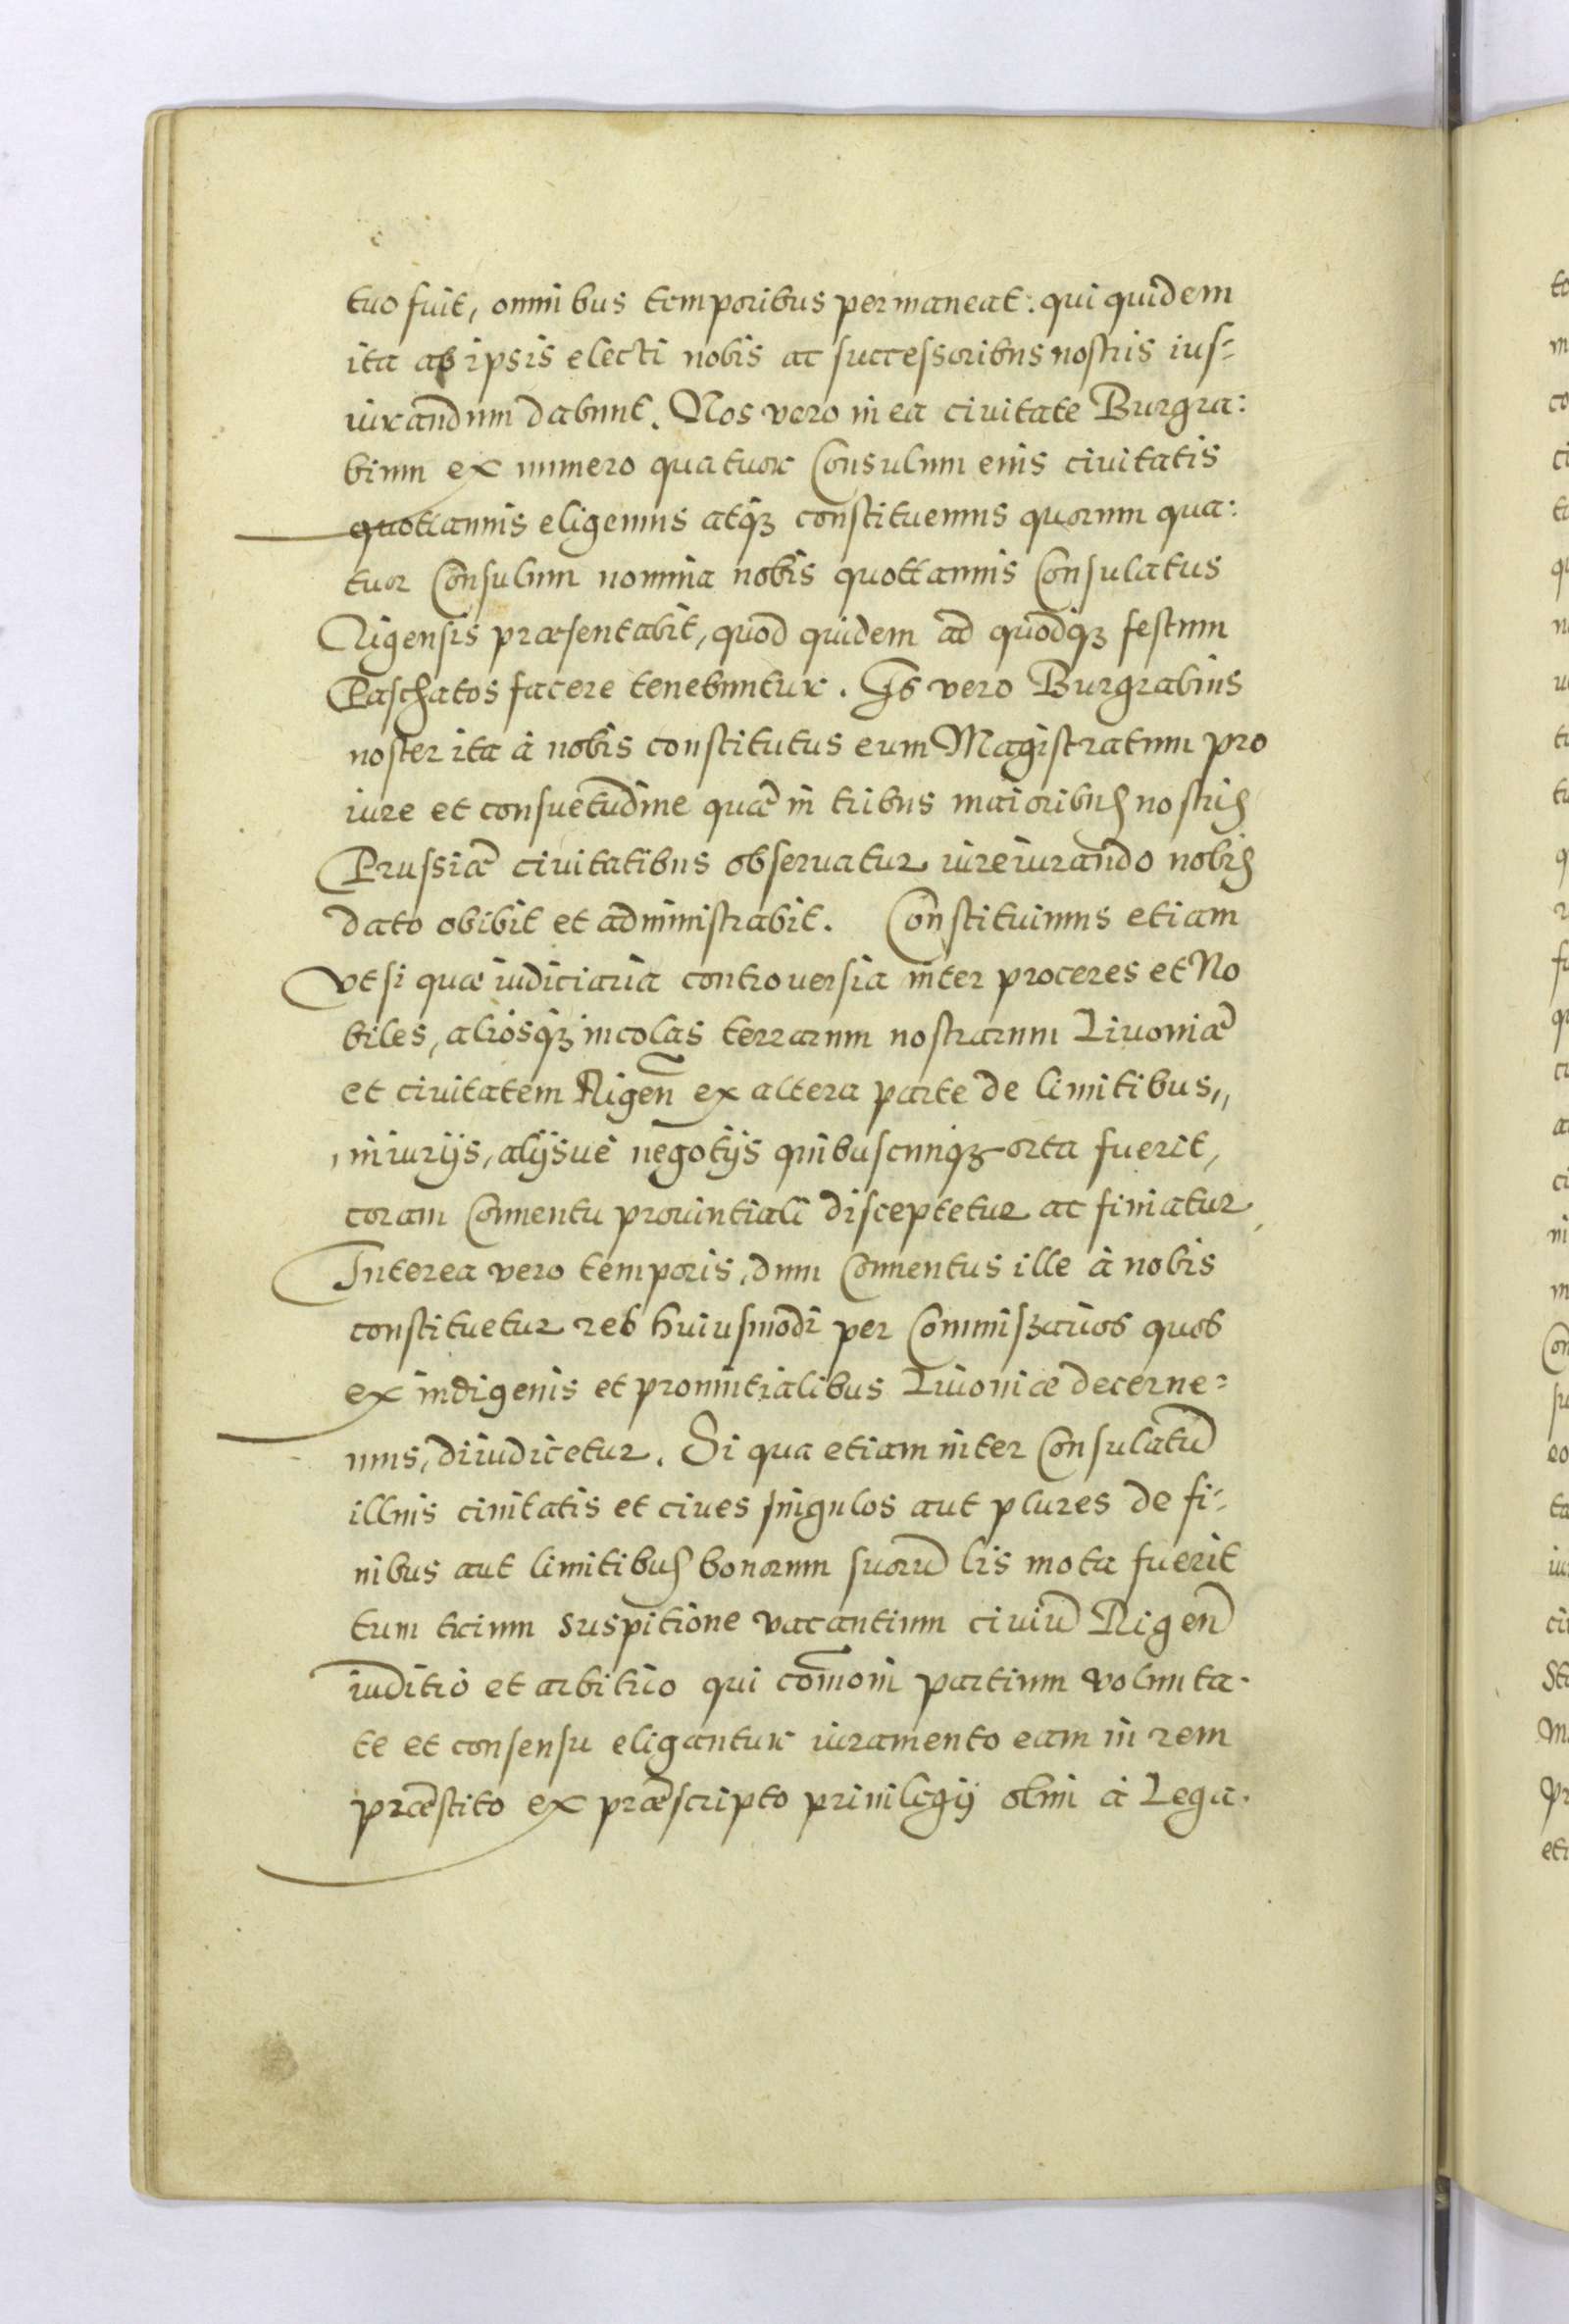 tuo fuit, omnibus temporibus permaneat: qui quidem
ita ab ipsis electi nobis ac successoribus nostris ius-
iurandum dabunt. Nos vero in ea ciuitate Burgra:
bium ex numero quatuor Consulum eius ciuitatis
quotannis eligemus atq₃ constituemus quorum qua:
tuor Consulum nomina nobis quottannis Consulatus
Rigensis præsentabit, quod quidem ad quodq₃ festum
Paschatos facere tenebuntur. Is vero Burgrabius
noster ita à nobis constitutus eum Magistratum pro
iure et consuetudine quæ in tribus maioribus nostris
Prussiæ ciuitatibus obseruatur iureiurando nobis
dato obibit et administrabit. Constituimus etiam
vt si quæ iudiciaria controuersia inter proceres et No
biles, aliosq₃ incolas terrarum nostrarum Liuoniæ
et ciuitatem Rigen̄ ex altera parte de limitibus,,
iniurijs, alijsue negotijs quibuscunq₃ orta fuerit,
coram Conuentu prouintiali disceptetur ac finiatur,
Interea vero temporis, dum Conuentus ille à nobis
constituetur res huiusmodi per Commissarios quos
ex indigenis et prouintialibus Liuoniæ decerne=
mus, diiudicetur. Si qua etiam inter Consulatū
illius ciuitatis et ciues singulos aut plures de fi-
nibus aut limitibus bonorum suorū lis mota fuerit
tum trium suspitione vacantium ciuiū Rigen̄
iuditio et arbitrio qui com̄oni partium volunta-
te et consensu eligantur iuramento eam in rem
præstito ex præscripto priuilegij olim à Lega-